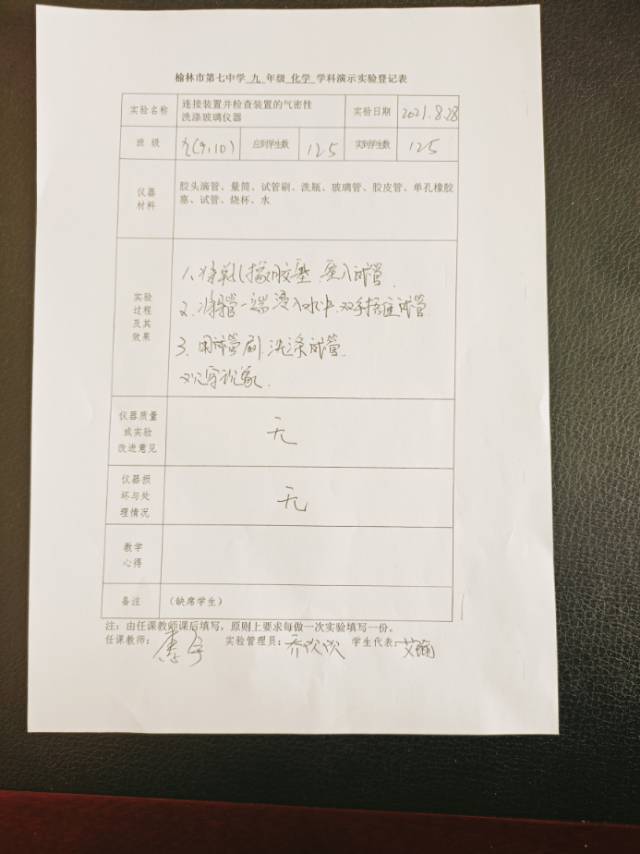 榆林市第七中学 九 年级 化学 学科演示实验登记表
实验名称 连接装置并检查装置的气密性 洗涤玻璃仪器 实验日期 2021.8.28
班 级 九(9.10) 应到学生数 125 实到学生数 125
仪器材料 胶头滴管、量筒、试管刷、洗瓶、玻璃管、胶皮管、单孔橡胶
塞、试管、烧杯、水
实验过程及其效果
1.将单孔橡胶塞 塞入试管
2.将导管一端浸入水中.双手捂住试管
3.用试管刷 洗涤试管.
观察现象.
仪器质量或实验改进意见 无
仪器损坏与处理情况 无
教学心得
备注 (缺席学生)
注:由任课教师课后填写,原则上要求每做一次实验填写一份。
任课教师: 实验管理员: 乔 学生代表: 艾